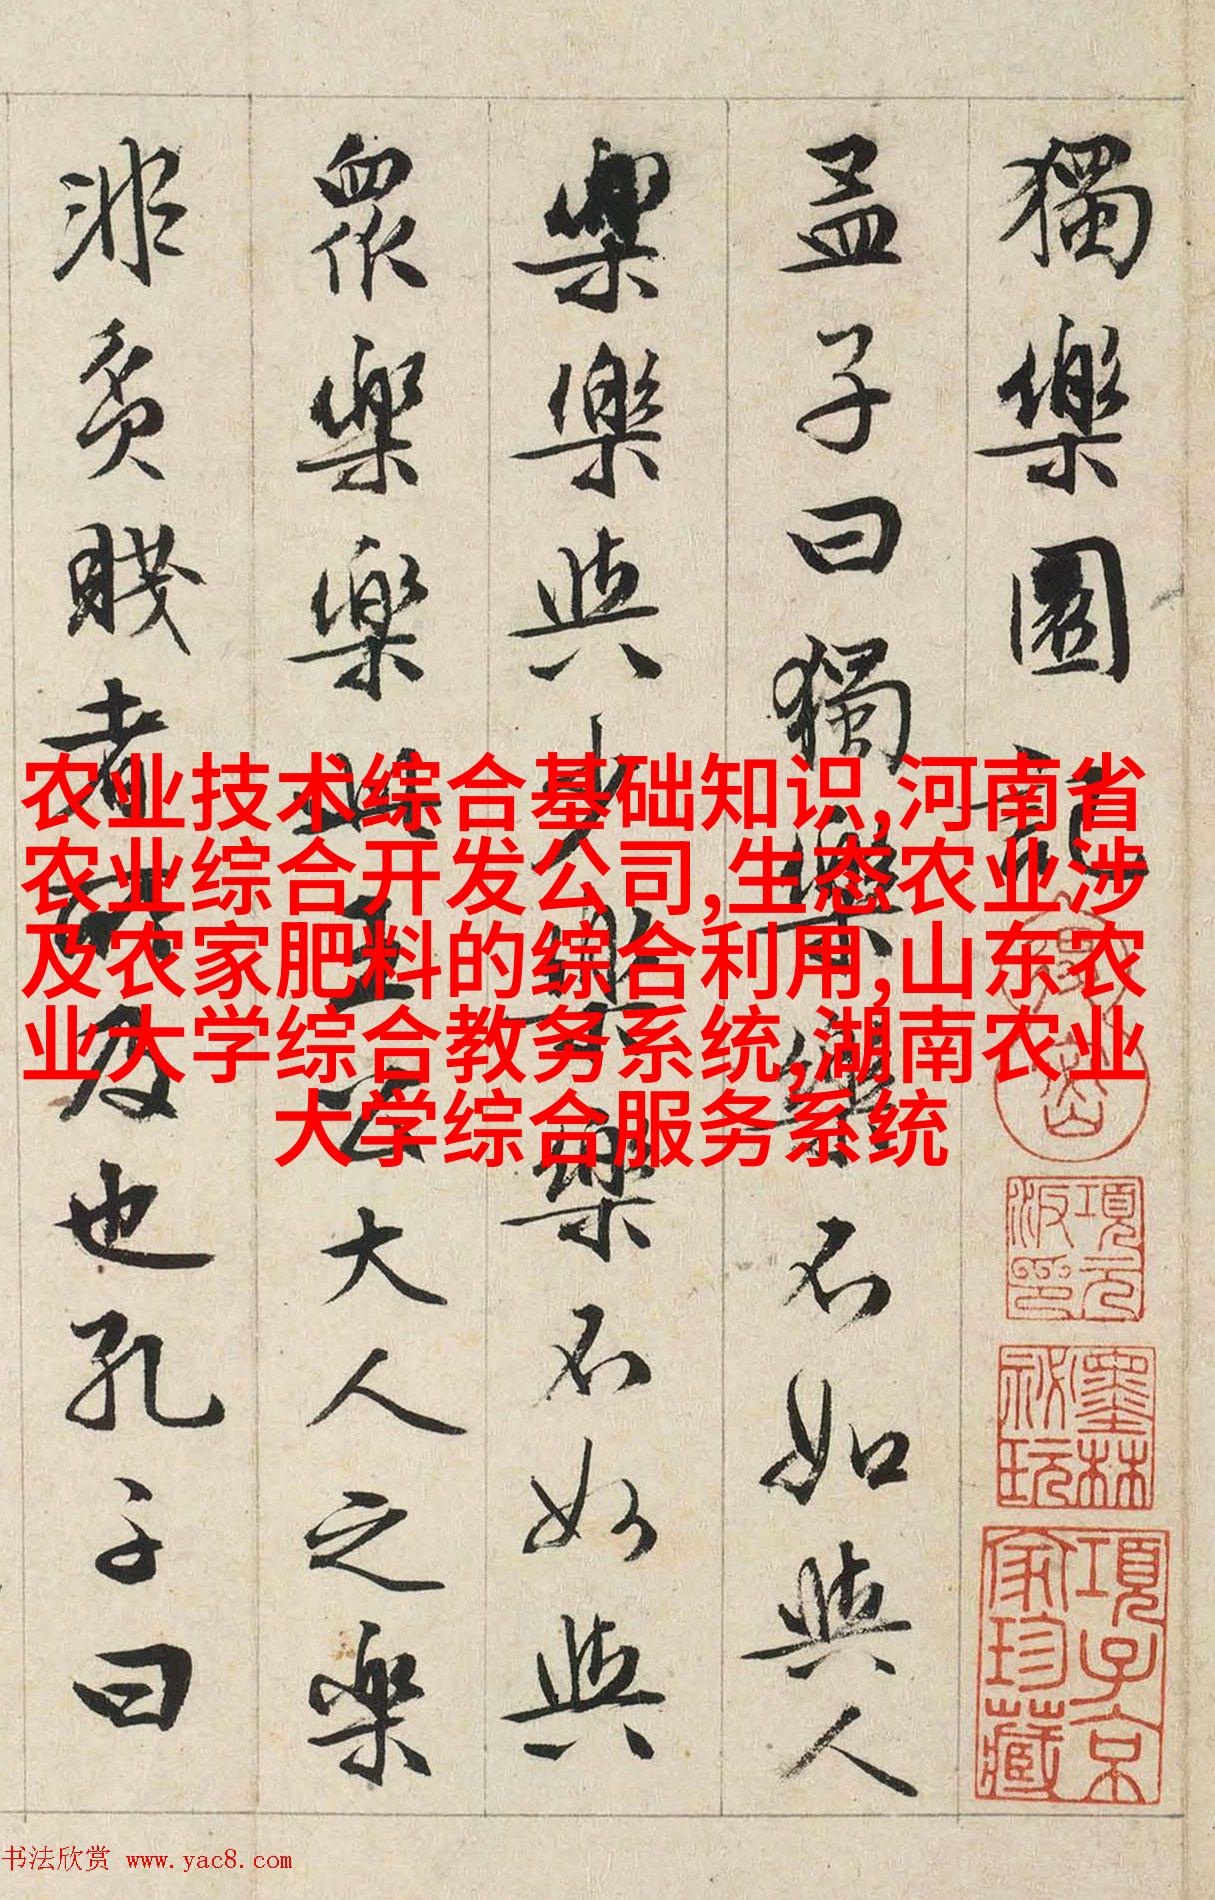 獨樂園記
孟子曰獨樂樂不如與人
樂樂與少樂樂不如與
衆樂樂此王公大人之樂
非貧賤者所及也孔子曰
农业技术综合基础知识,河南省
农业综合开发公司,生态农业涉
及农家肥料的综合利用,山东农
业大学综合教务系统,湖南农业
大学综合服务系统
項元
汴印
墨林
祕玩
項子京
家珍藏
书法欣赏 www.yac8.com